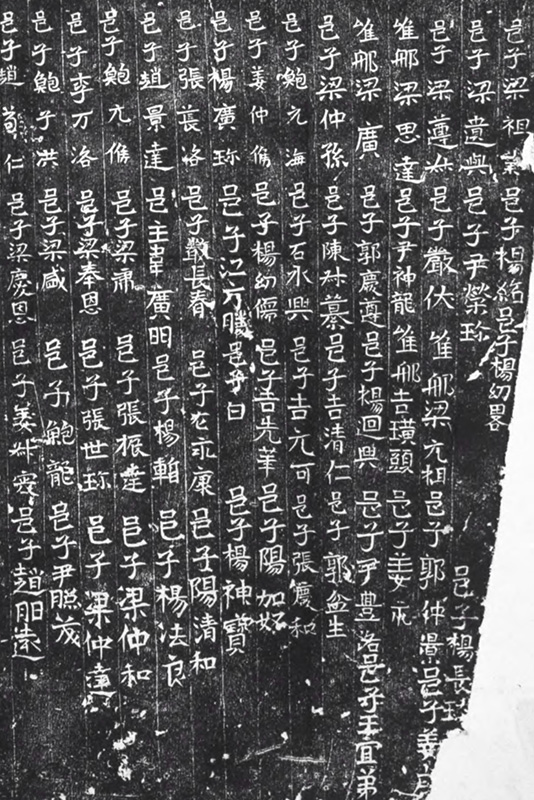 邑子梁祖 邑子楊紹 邑子楊幼
邑子梁遺興 邑子尹榮珎 邑子楊長珎
邑子梁遵 邑子嚴伏 維那梁元相 邑子郭仲景 邑子姜
維那梁思達 邑子尹神龍 維那吉璜頭 邑子姜永
維那梁廣 邑子郭慶遵 邑子楊迴興 邑子尹豊洛 邑子王宜弟
邑子梁仲孫 邑子陳叔慕 邑子吉清仁 邑子郭盆生
邑子鮑元海 邑子石永興 邑子吉元可 邑子張慶和
邑子姜仲儁 邑子楊幼儒 邑子吉先華 邑子陽加好
邑子楊廣珎 邑子江方 邑子白 邑子楊神寶
邑子張萇洛 邑子嚴長春 邑子左永康 邑子陽清和
邑子趙景達 邑 廣明 邑子楊暫 邑子楊法良
邑子鮑元儁 邑子梁肅 邑子張振達 邑子梁仲和
邑子李万洛 邑子梁奉恩 邑子張世珎 邑子梁仲達
邑子鮑子洪 邑子梁咸 邑子鮑龍 邑子尹照茂
邑子趙苟仁 邑子梁慶恩 邑子姜叔 邑子趙明遠